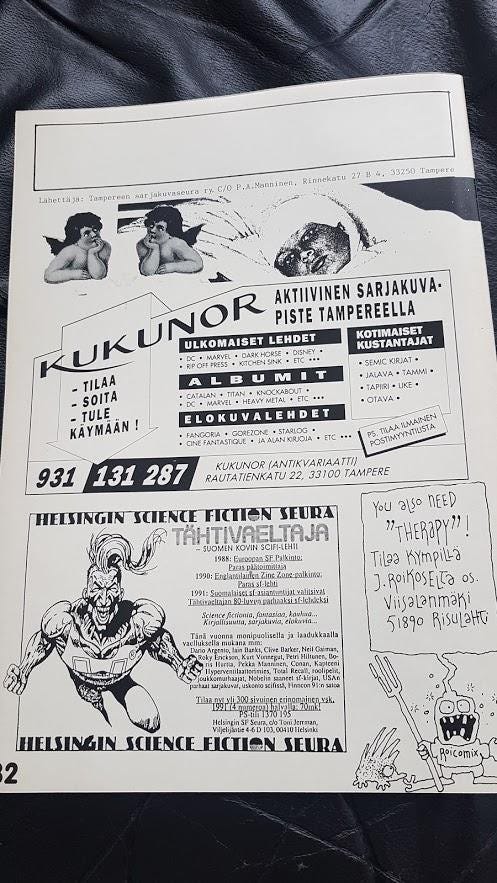 Lähettäjä: Tampereen sarjakuvaseura ry. C/O P.A.Manninen, Rinnekatu 27 B 4, 33250 Tampere
KUKUNOR
AKTIIVINEN SARJAKUVA-
PISTE TAMPEREELLA
– TILAA
– SOITA
– TULE
KÄYMÄÄN !
ULKOMAISET LEHDET
• DC • MARVEL • DARK HORSE • DISNEY •
• RIP OFF PRESS • KITCHEN SINK • ETC •••
ALBUMIT
• CATALAN • TITAN • KNOCKABOUT •
• DC • MARVEL • HEAVY METAL • ETC •••
ELOKUVALEHDET
• FANGORIA • GOREZONE • STARLOG •
• CINE FANTASTIQUE • JA ALAN KIRJOJA • ETC •••
KOTIMAISET
KUSTANTAJAT
• SEMIC KIRJAT •
• JALAVA • TAMMI •
• TAPIRI • LIKE •
• OTAVA •
PS. TILAA ILMAINEN
POSTIMYYNTILISTA
931 131 287
KUKUNOR (ANTIKVARIAATTI)
RAUTATIENKATU 22, 33100 TAMPERE
HELSINGIN SCIENCE FICTION SEURA
TÄHTIVAELTAJA
– SUOMEN KOVIN SCIFI-LEHTI
1988: Euroopan SF Palkinto:
Paras päätoimittaja
1990: Englantilainen Zine Zone-palkinto:
Paras sf-lehti
1991: Suomalaiset sf-asiantuntijat valitsivat
Tähtivaeltajan 80-luvun parhaaksi sf-lehdeksi
Science fictionia, fantasiaa, kauhua...
Kirjallisuutta, sarjakuvia, elokuvia...
Tänä vuonna monipuolisella ja laadukkaalla
vaelluksella mukana mm:
Dario Argento, Iain Banks, Clive Barker, Neil Gaiman,
Roky Erickson, Kurt Vonnegut, Petri Hiltunen, Bo-
ris Hurtta, Pekka Manninen, Conan, Kapteeni
Hyperventilaattorimies, Total Recall, roolipelit,
joukkomurhaajat, Nobelin saaneet sf-kirjat, USAn
parhaat sarjakuvat, uskonto scifissä, Finncon 91:n satoa
Tilaa nyt yli 300 sivuinen erinomainen vsk.
1991 (4 numeroa) halvalla: 70mk!
PS-tili 1370 195
Helsingin SF Seura, c/o Toni Jerrman,
Viljelijäntie 4-6 D 103, 00410 Helsinki
HELSINGIN SCIENCE FICTION SEURA
You also NEED
"THERAPY"!
Tilaa Kympillä
J. Roikoselta os.
Viisalanmäki
51890 Risulahti
Roicomix
32